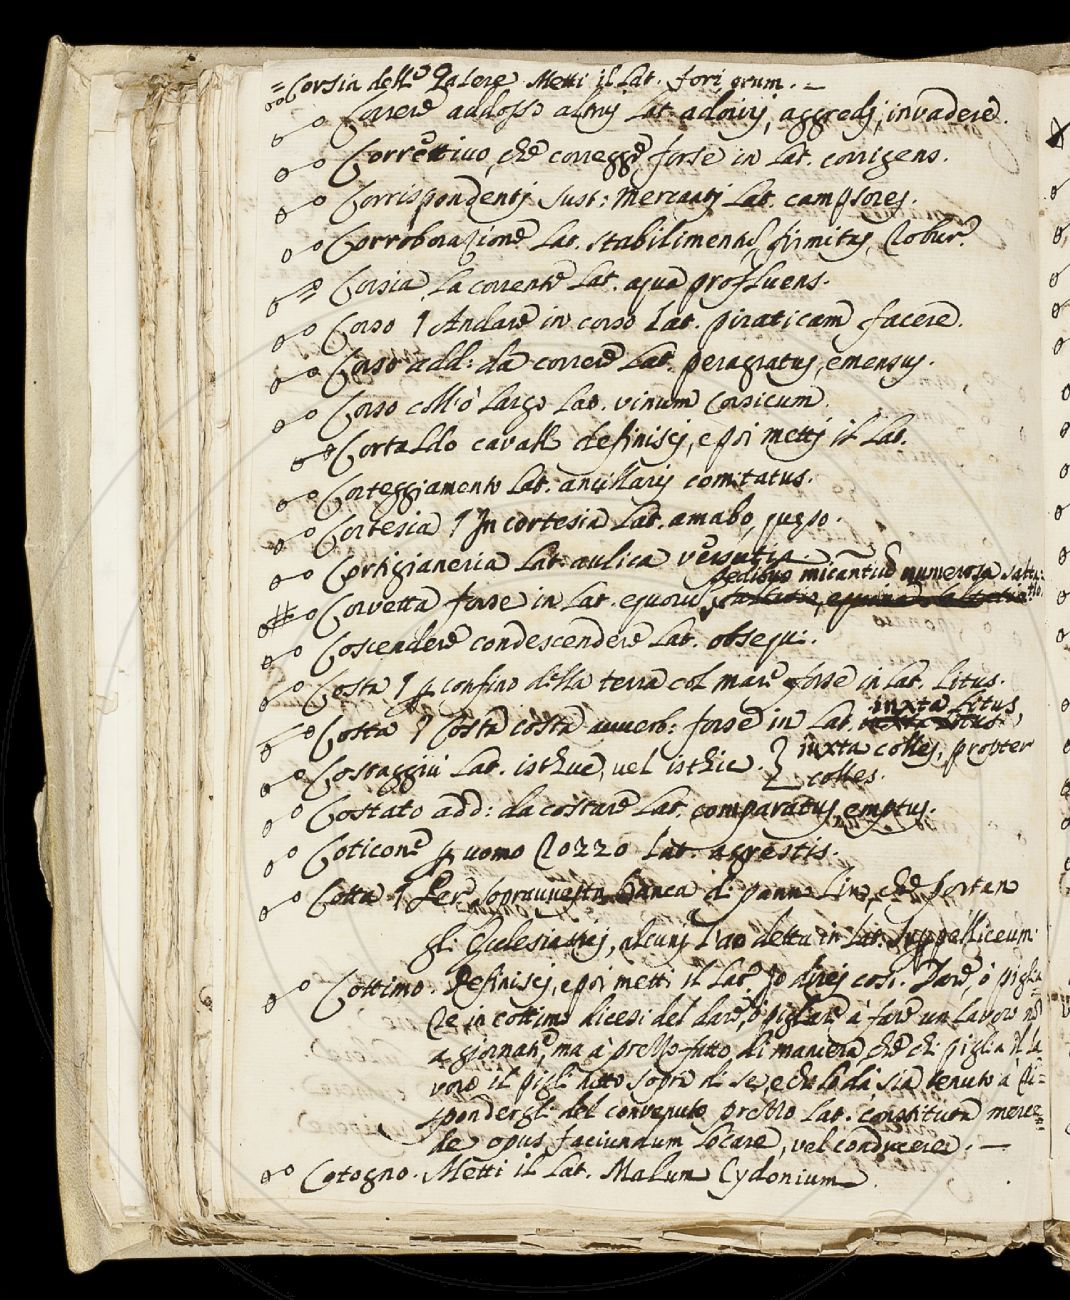 = Corsia delle Galere Metti il Lat. fori, orum. —
Correre addosso altrui Lat. adoriri, aggredi, invadere.
Correttivo, che corregge, forse in Lat. corrigens.
Corrispondenti sust: Mercanti Lat. campsores.
Corroborazione Lat. stabilimentum, firmitas, Robur.
Corsia, la corrente Lat. aqua profluens.
Corso ¶ Andare in corso Lat. piraticam facere.
Corso add: da correre Lat. peragratus, emensus.
Corso coll'o largo Lat. vinum Corsicum.
Cortaldo cavallo definisci, e poi metti il Lat.
Corteggiamento Lat. ancillaris comitatus.
Cortesia ¶ In cortesia Lat. amabo, quęso.
Cortigianeria Lat. aulica versutia.
pedibus micantium numerosa salta:
Corvetta forse in Lat. equorum tio.
Coscendere condescendere Lat. obsequi.
Costa ¶ p confino della terra col mare forse in Lat. Litus.
iuxta Litus,
Costa ¶ Costa costa avverb: forse in Lat.
iuxta colles, propter
Costaggiù Lat. isthuc, vel isthic. } colles.
Costato add: da costare Lat. comparatus, emptus.
Coticone p uomo Rozzo Lat. agrestis.
Cotta ¶ Per sopravvesta bianca di panno lino, che portan
gli Ecclesiastici, alcuni l'an detta in Lat. Suppelliceum.
Cottimo. Definisci, e poi metti il Lat. Io direi così. Dare, ò piglia
Re in cottimo dicesi del dare, ò pigliare à fare un Lavoro nõ
a giornate, ma à prezzo fatto, di maniera che chi piglia il la
voro il pigli tutto sopra di se, e chi lo dà sia tenuto à Ri=
spondergli del convenuto prezzo Lat. constituta merce=
de opus faciundum locare, vel conducere. —
Cotogno. Metti il Lat. Malum Cydonium.